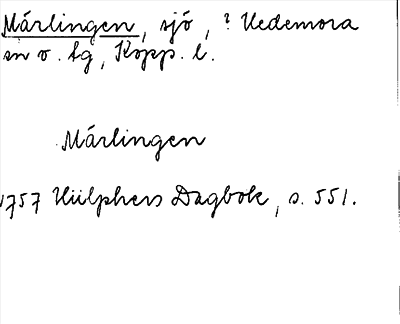 Mårlingen, sjö, ? Hedemora
sn o. tg, Kopp. l.
Mårlingen
1757 Hülphers Dagbok, s. 551.